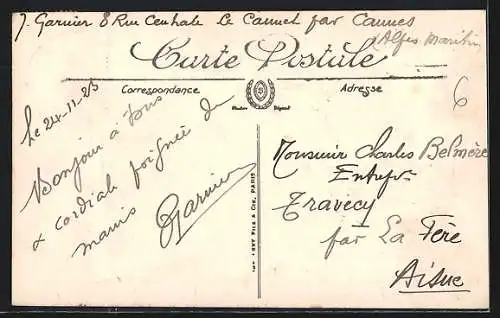 J. Garnier 8 Rue Centrale Le Cannet par Cannes
(Alpes Maritim
Carte Postale
Correspondance
Adresse
6
Le 24-11-25
Bonjour à tous
& cordiale poignée de
mains
Garnier
LEVY FILS & Cie, PARIS
Monsieur Charles Belmère
Entrepr.
Travecy
par La Fère
Aisne